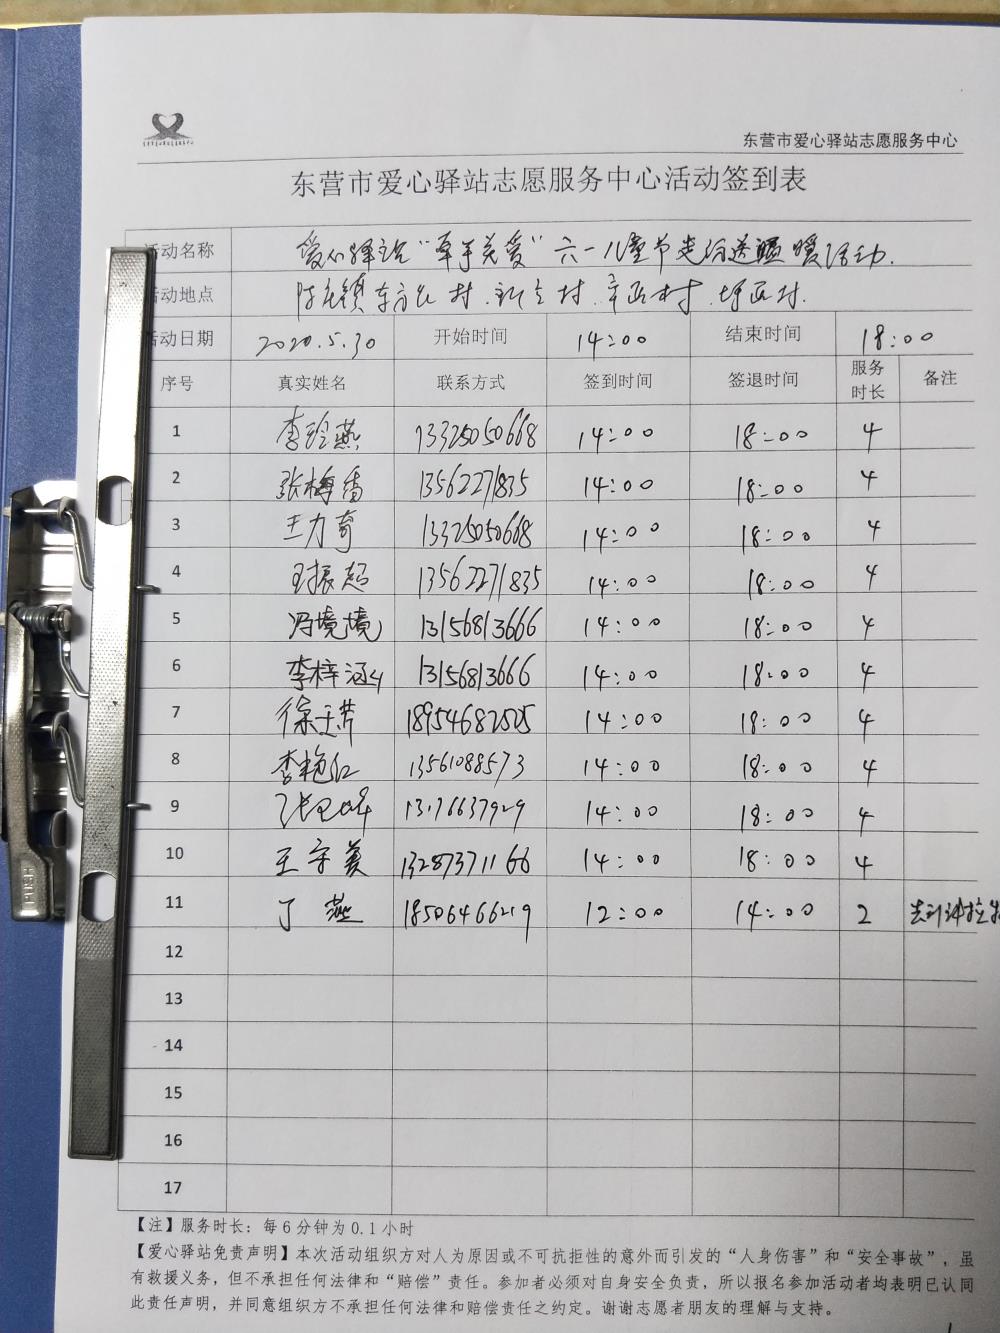 东营市爱心驿站志愿服务中心
东营市爱心驿站志愿服务中心活动签到表
活动名称 爱心驿站“牵手关爱”六一儿童节走访送温暖活动.
活动地点 陈庄镇东方红村.新立村.辛西村.坤西村.
活动日期 2020.5.30 开始时间 14:00 结束时间 18:00
序号 真实姓名 联系方式 签到时间 签退时间 服务时长 备注
1 李玲燕 13325050668 14:00 18:00 4
2 张梅香 13562271835 14:00 18:00 4
3 王力奇 13325050668 14:00 18:00 4
4 王振超 13562271835 14:00 18:00 4
5 冯境境 13156813666 14:00 18:00 4
6 李梓涵 13156813666 14:00 18:00 4
7 徐玉芹 18954682525 14:00 18:00 4
8 李艳红 13561088573 14:00 18:00 4
9 14:00 18:00 4
10 王守美 13287371166 14:00 18:00 4
11 丁燕 18506466219 12:00 14:00 2
12
13
14
15
16
17
【注】服务时长：每6分钟为0.1小时
【爱心驿站免责声明】本次活动组织方对人为原因或不可抗拒性的意外而引发的“人身伤害”和“安全事故”，虽
有救援义务，但不承担任何法律和“赔偿”责任。参加者必须对自身安全负责，所以报名参加活动者均表明已认同
此责任声明，并同意组织方不承担任何法律和赔偿责任之约定。谢谢志愿者朋友的理解与支持。
PUSH